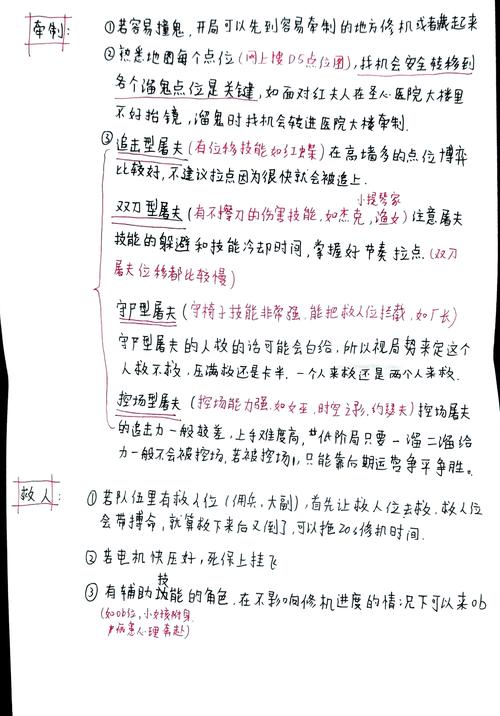 牵制：
①若容易撞鬼，开局可以先到容易牵制的地方修机或者藏起来
②熟悉地图每个点位（网上搜D5点位图），找机会安全转移到
各个溜鬼点位是关键，如面对红夫人在圣心医院大楼里
不好抬镜，溜鬼时找机会转进医院大楼牵制.
③追击型屠夫（有位移技能如红蝶）在高墙多的点位博弈
比较好，不建议拉点因为很快就会被追上.
小提琴家
双刀型屠夫（有不擦刀的伤害技能，如杰克，渔女）注意屠夫
技能的躲避和技能冷却时间，掌握好节奏拉点.（双刀
屠夫位移都比较慢）
守尸型屠夫（守椅子技能非常强，能把救人位拦截，如厂长）
守尸型屠夫的人救的话可能会白给，所以视局势来定这个
人救不救，压满救还是卡半.一个人来救还是两个人来救.
控场型屠夫（控场能力强，如女巫，时空之影，约瑟夫）控场屠夫
的追击力一般较差，上手难度高，若低阶局只要一溜二溜给
力一般不会被控场，若被控场，只能靠后期运营争平争胜。
救人：
①若队伍里有救人位（佣兵，大副），首先让救人位去救.救人位
会带搏命，就算救下来后又倒了，可以拖20s修机时间.
②若电机快压好，死保上挂飞
技
③有辅助功能的角色.在不影响修机进度的情况下可以来ob
（如ob位，小女孩附身
病患心理奔赴）